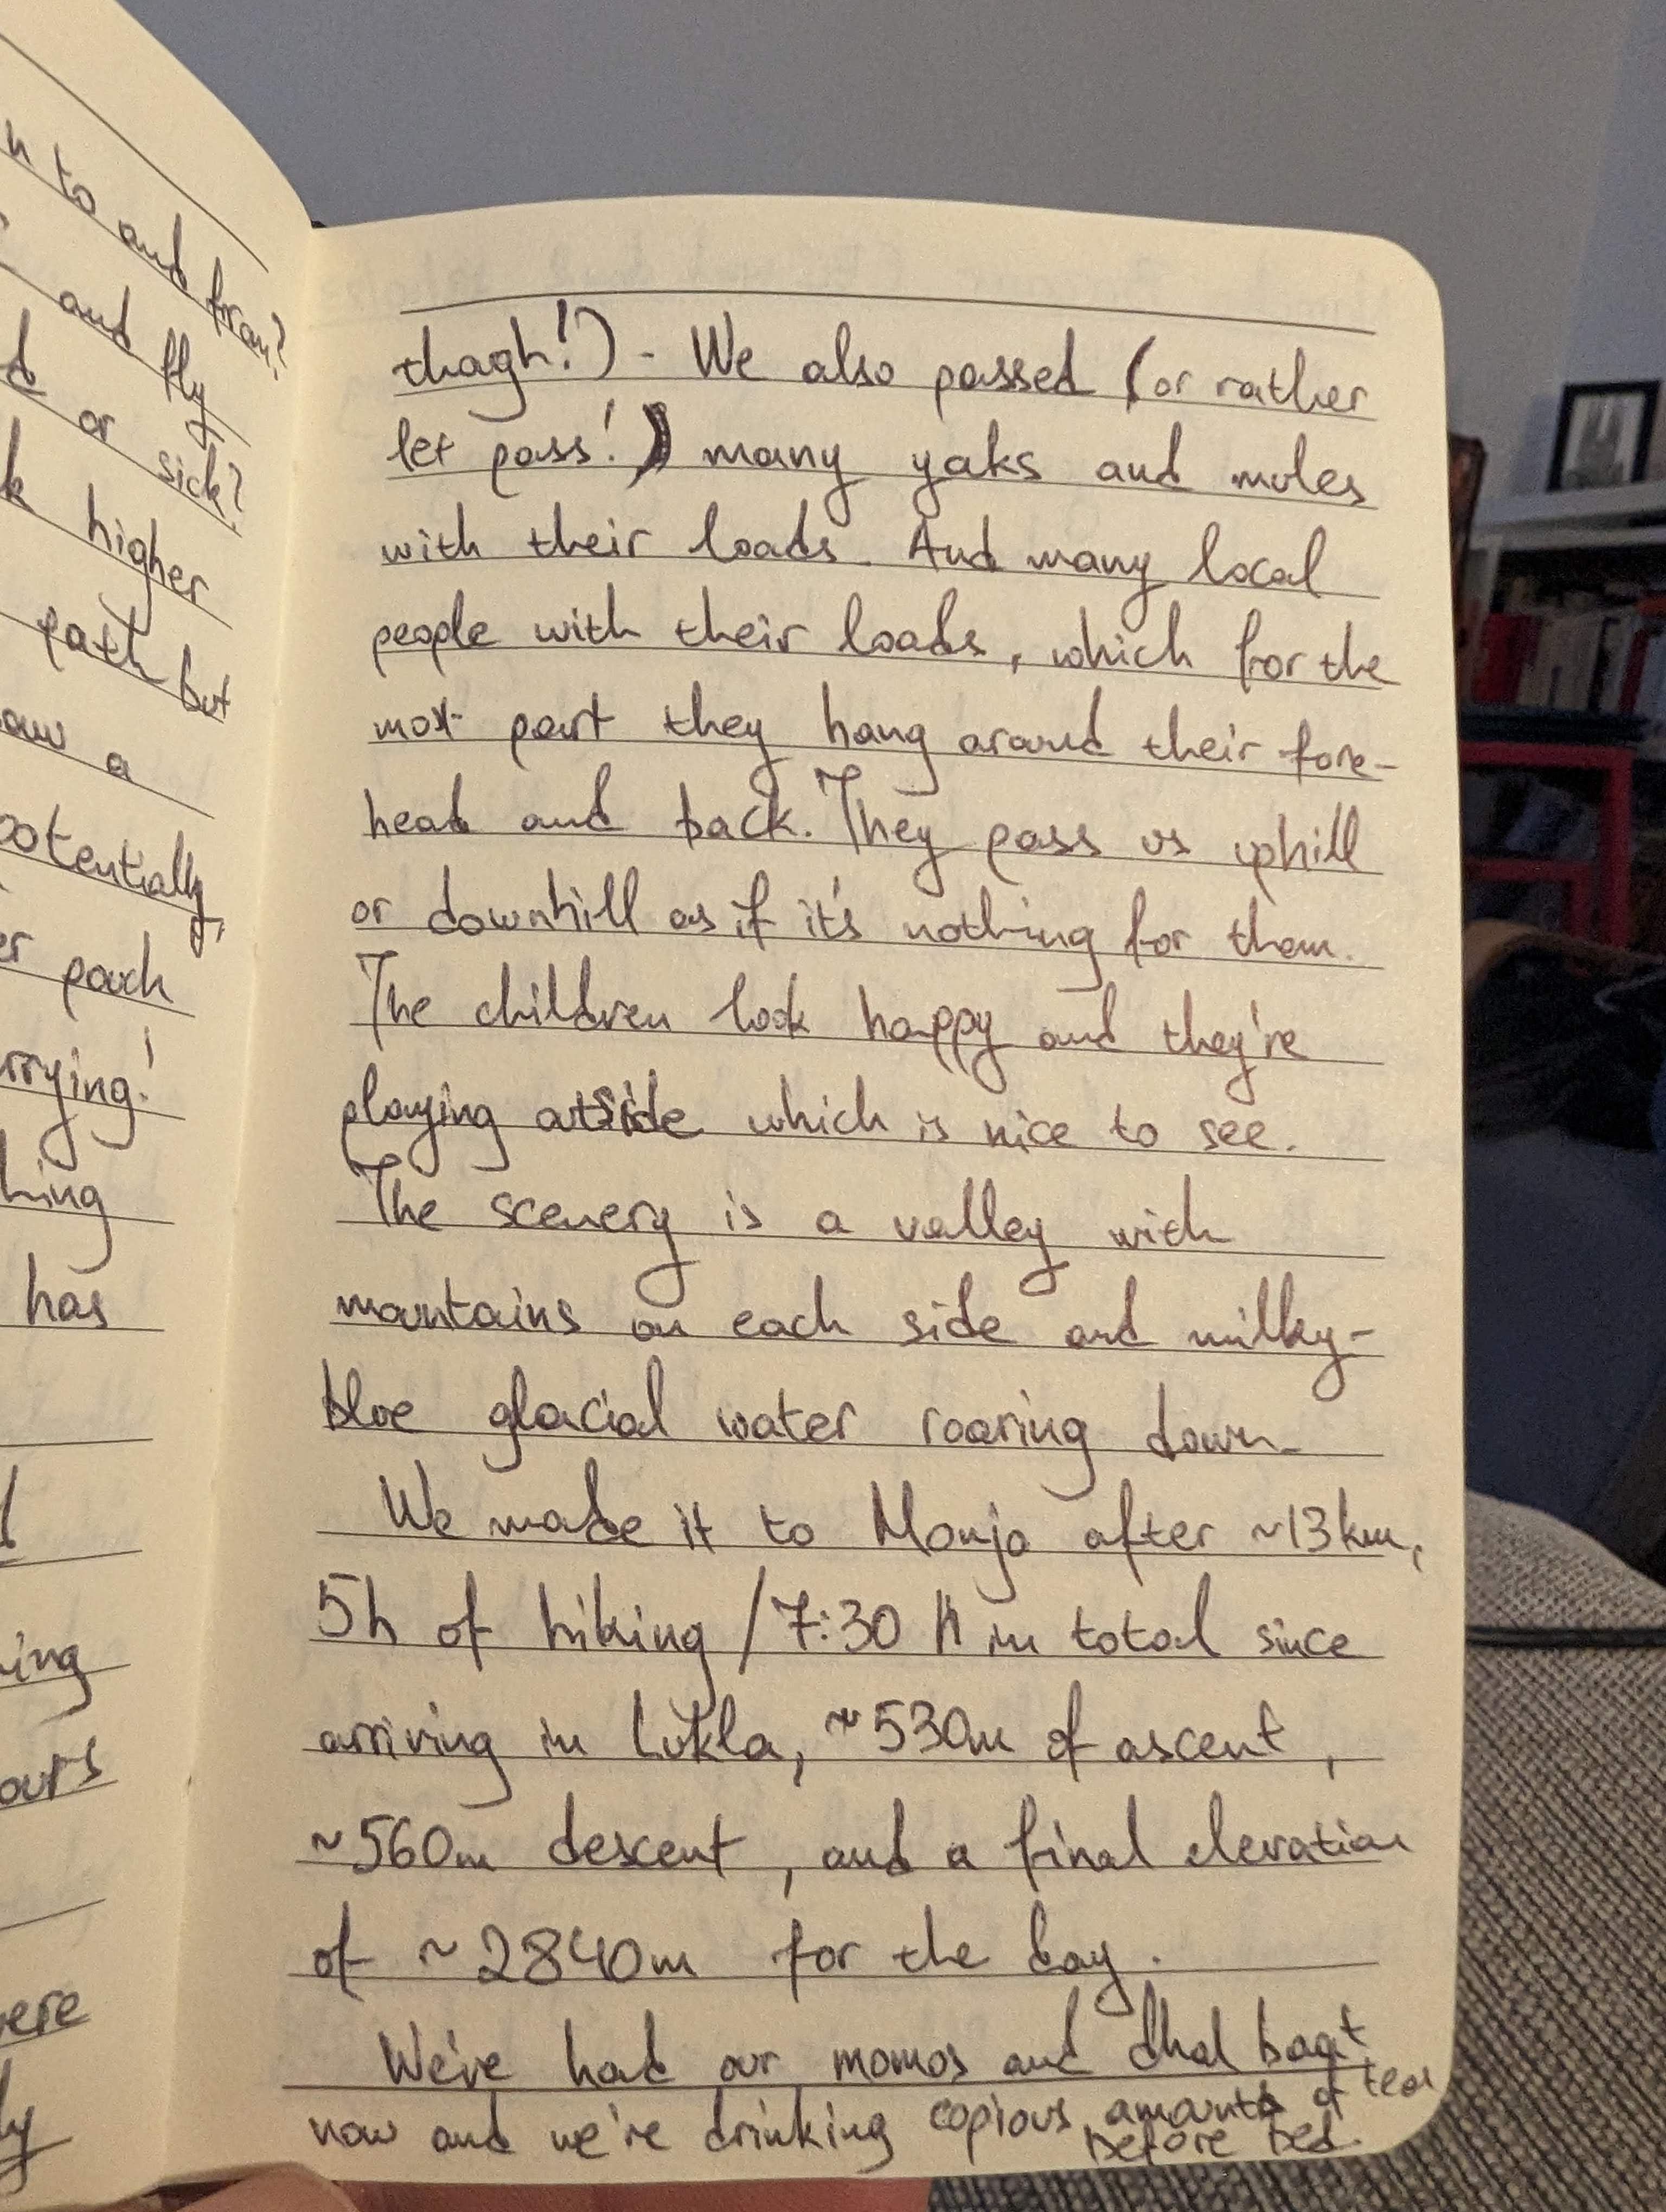 n to and from?
and fly
d or sick?
k higher
path but
aw a
potentially,
er pouch
rrying!
hing
has
d
ing
ours
ere
ly
though!) - We also passed (or rather
let pass!) many yaks and mules
with their loads. And many local
people with their loads, which for the
most part they hang around their fore-
head and back. They pass us uphill
or downhill as if it's nothing for them.
The children look happy and they're
playing outside which is nice to see.
The scenery is a valley with
mountains on each side and milky-
blue glacial water roaring down.
We made it to Monjo after ~13km,
5h of hiking / 7:30 h in total since
arriving in Lukla, ~530m of ascent,
~560m descent, and a final elevation
of ~2840m for the day.
We've had our momos and dhal baat
now and we're drinking copious amounts of tea
before bed.